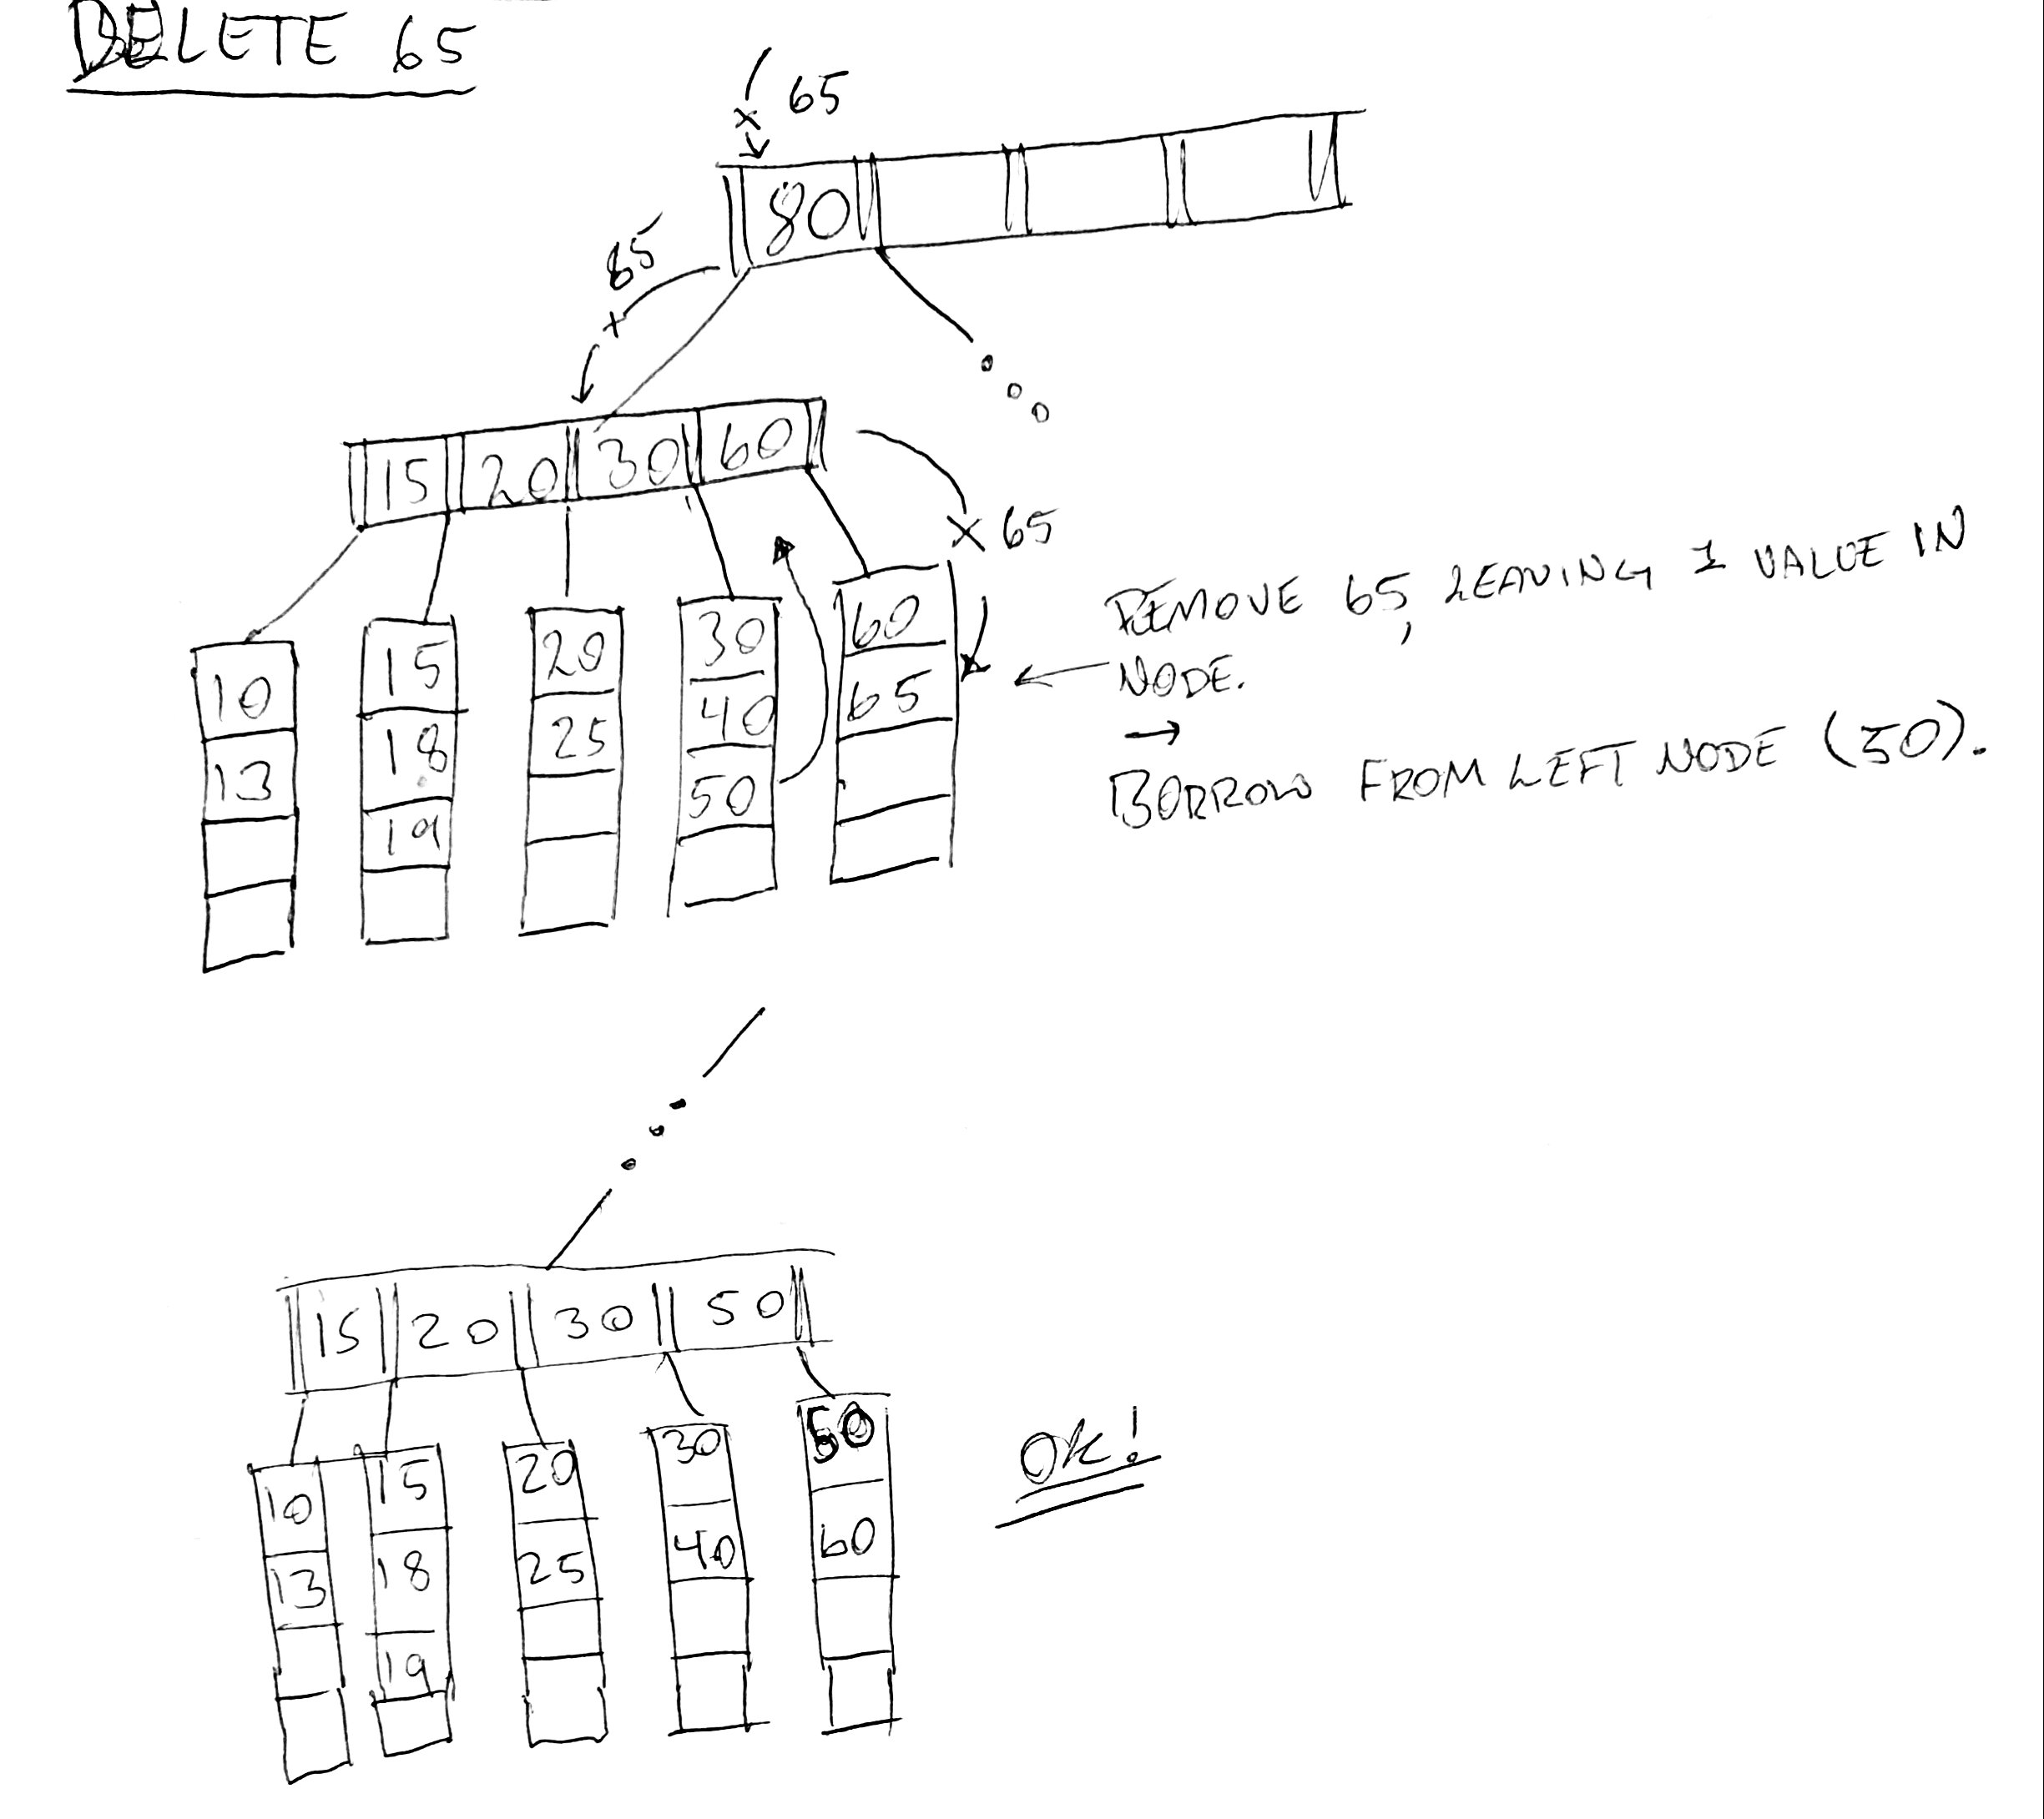 DELETE 65
65
80
65
15 20 30 60
65
10 13
15 18 19
20 25
30 40 50
60 65
REMOVE 65, LEAVING 1 VALUE IN
NODE.
→
BORROW FROM LEFT NODE (50).
15 20 30 50
10 13
15 18 19
20 25
30 40
50 60
OK!